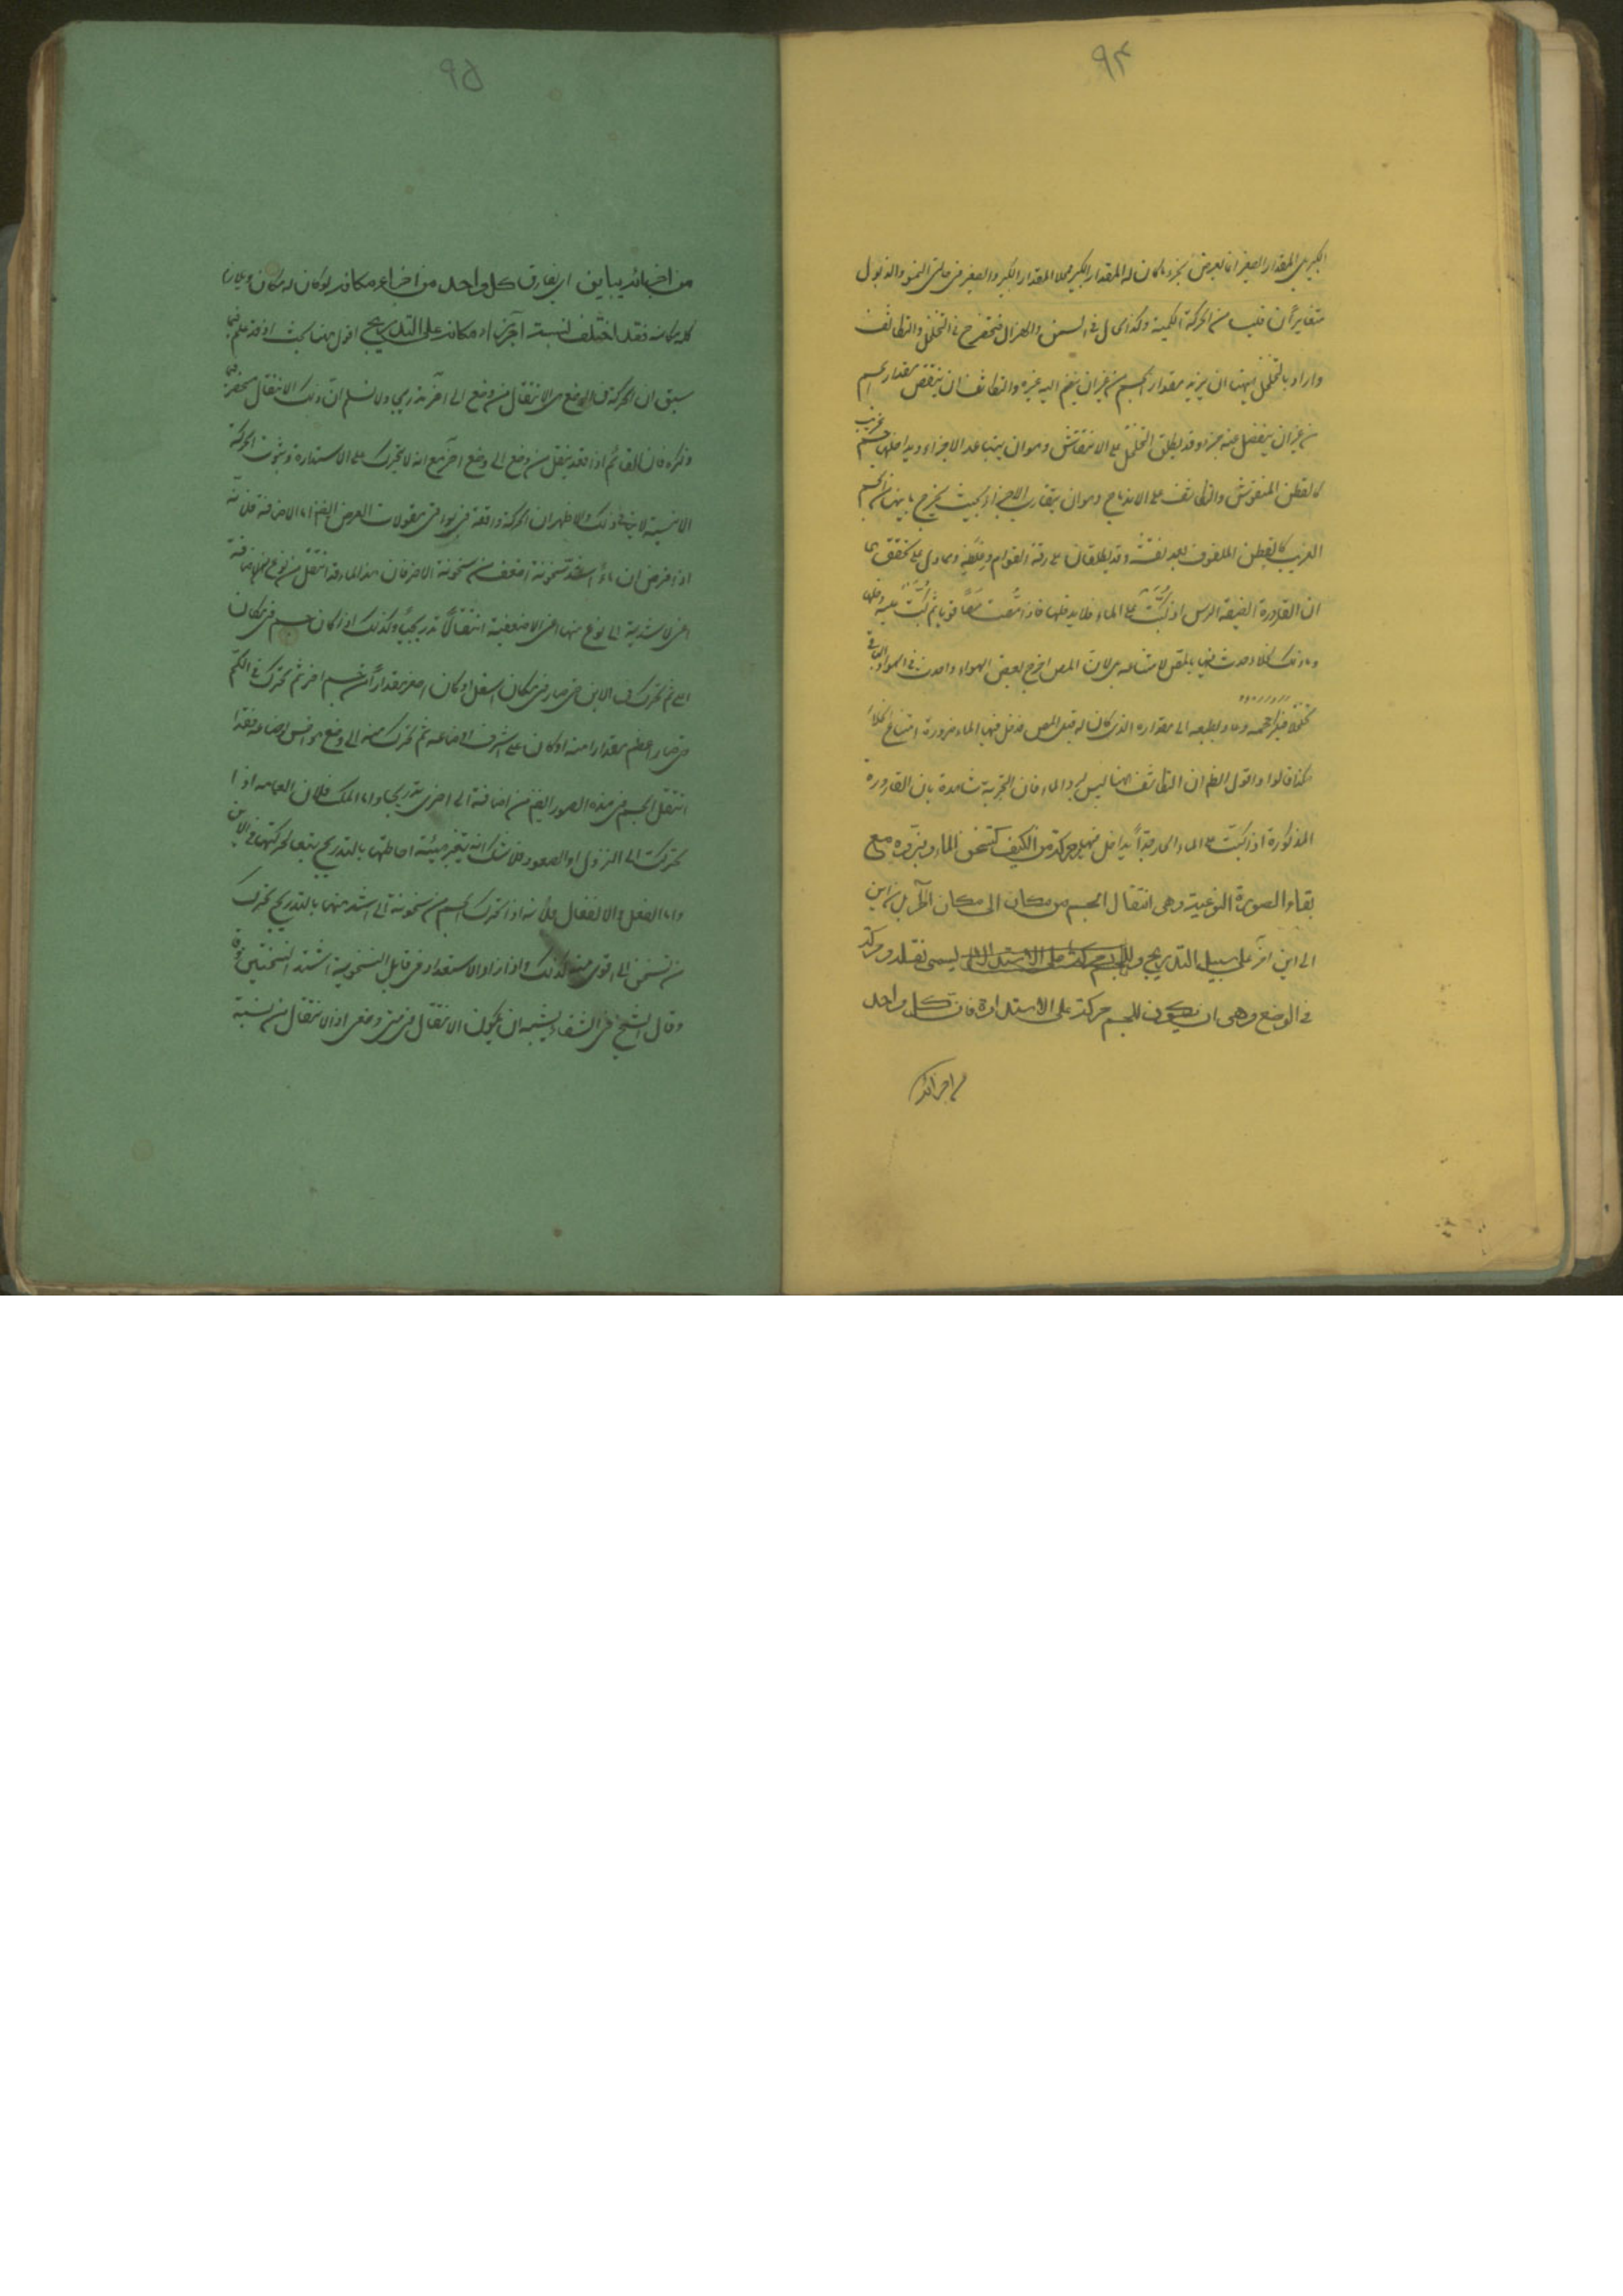 ٩٤
الكبير بل المقدار الصغير انما يعرض لجزء ما كان له المقدار الكبير فمحلا المقدار الكبير والصغير في حالتي النمو والذبول
متغايران فليسا من الحركة الكمية وكذا الحال في السمن والهزال فتنحصر في التخلخل والتكاثف
واراد بالتخلخل ههنا ان يزيد مقدار الجسم من غير ان ينضم اليه غيره والتكاثف ان ينتقص مقدار الجسم
من غير ان ينفصل عنه جزء وقد يطلق التخلخل على الانتفاش وهو ان يتباعد الاجزاء ويداخلها جسم غريب
كالقطن المنفوش والتكاثف على الاندماج وهو ان يتقارب الاجزاء بحيث يخرج ما بينها من الجسم
الغريب كالقطن الملفوف بعد نفشه وقد يطلقان على رقة القوام وغلظه ومما يدل على تحققهما
ان القارورة الضيقة الراس اذا كبت على الماء فلا يدخلها فاذا مصت مصا قويا ثم كبت عليه دخلها
وما ذلك لخلاء حدث فيها بالمص لامتناعه بل لان المص اخرج بعض الهواء واحدث في الهواء الباقي
تخلخلا فكبر حجمه وعاد بطبعه الى مقداره الذي كان له قبل المص فدخل فيها الماء ضرورة امتناع الخلاء
هكذا قالوا واقول الظاهر ان التكاثف ههنا ليس لبرد الماء فان التجربة شاهدة بان القارورة
المذكورة اذا كبت على الماء الحار جدا يداخل فيها وحركة من الكيف كتسخن الماء وتبرده مع
بقاء الصورة النوعية وهى انتقال الجسم من مكان الى مكان آخر بل من اين
الى اين آخر على سبيل التدريج ويسمى نقلة وحركة
في الوضع وهى ان يكون للجسم حركة على الاستدارة فان كل واحد
من اجزائه
٩٥
من اجزائه يباين اي يفارق كل واحد من اجزاء مكانه لو كان له مكان ويلازم
كله مكانه فقد اختلف نسبة اجزائه الى اجزاء مكانه على التدريج اقول ههنا بحث اذ قد علم فيما
سبق ان الحركة في الوضع هي الانتقال من وضع الى آخر تدريجا ولا نسلم ان ذلك الانتقال منحصر فيما
ذكره فان القائم اذا قعد ينتقل من وضع الى وضع آخر مع انه لا يتحرك على الاستدارة وثبوت الحركة
الاينية لا ينافي ذلك والاظهر ان الحركة واقعة في بواقي مقولات العرض ايضا اما الاضافة فلانه
اذا فرض ان ماء اشد تسخنه اضعف من سخونة الآخر فان هذا الماء قد انتقل من نوع من الاضافة
اعني الاشدية الى نوع منها اعني الاضعفية انتقالا تدريجيا وكذلك اذا كان جسم في مكان
اعلى ثم تحرك في الاين حتى صار في مكان اسفل او كان اصغر مقدارا من جسم آخر ثم تحرك في الكم
حتى صار اعظم مقدارا منه او كان على اشرف اوضاعه ثم تحرك منه الى وضع هو اخس اوضاعه فقد
انتقل الجسم في هذه الصور ايضا من اضافة الى اخرى تدريجا واما الملك فلان العمامة اذا
تحركت الى النزول او الصعود فلا شك انه يتغير هيئة احاطتها بالتدريج تبعا لحركتها في الاين
واما الفعل والانفعال فلانه اذا تحرك الجسم من سخونة الى اشد منها بالتدريج تحرك
من تسخن الى اقوى منه كذلك واذا ازداد الاستعداد في قابل السخونية اشتد التسخين
وقال الشيخ في الشفاء يشبه ان يكون الانتقال في متى دفعي اذ الانتقال من سنة